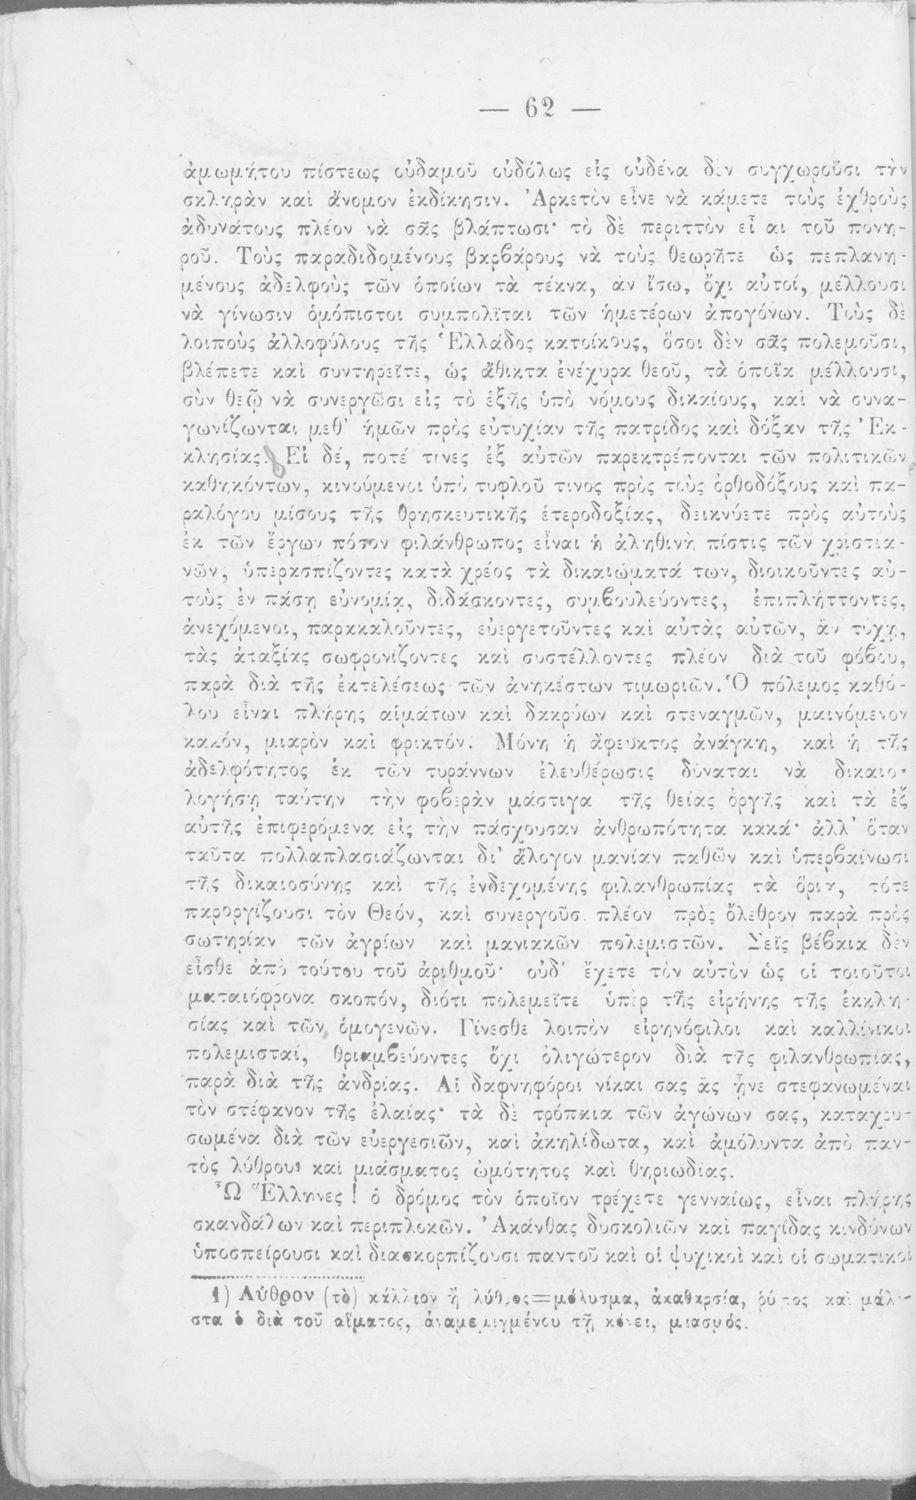 — 62 —
ἀμωμήτου πίστεως οὐδαμοῦ οὐδόλως εἰς οὐδένα δὲν συγχωροῦσι τὴν
σκληρὰν καὶ ἄνομον ἐκδίκησιν. Ἀρκετὸν εἶνε νὰ κάμετε τοὺς ἐχθροὺς
ἀδυνάτους πλέον νὰ σᾶς βλάπτωσι· τὸ δὲ περιττὸν εἶ αι τοῦ πονη-
ροῦ. Τοὺς παραδιδομένους βαρβάρους νὰ τοὺς θεωρῆτε ὡς πεπλανη-
μένους ἀδελφοὺς τῶν ὁποίων τὰ τέκνα, ἂν ἴσως ὄχι αὐτοί, μέλλουσι
νὰ γίνωσιν ὁμόπιστοι συμπολῖται τῶν ἡμετέρων ἀπογόνων. Τοὺς δὲ
λοιποὺς ἀλλοφύλους τῆς Ἑλλάδος κατοίκους, ὅσοι δὲν σᾶς πολεμοῦσι,
βλέπετε καὶ συντηρεῖτε, ὡς ἄθικτα ἐνέχυρα θεοῦ, τὰ ὁποῖα μέλλουσι,
σὺν θεῷ νὰ συνεργῶσι εἰς τὸ ἑξῆς ὑπὸ νόμους δικαίους, καὶ νὰ συνα-
γωνίζωνται μεθ' ἡμῶν πρὸς εὐτυχίαν τῆς πατρίδος καὶ δόξαν τῆς Ἐκ-
κλησίας. Εἰ δέ, ποτέ τινες ἐξ αὐτῶν παρεκτρέπονται τῶν πολιτικῶν
καθηκόντων, κινούμενοι ὑπὸ τυφλοῦ τινος πρὸς τοὺς ὀρθοδόξους καὶ πα-
ραλόγου μίσους τῆς θρησκευτικῆς ἑτεροδοξίας, δεικνύετε πρὸς αὐτοὺς
ἐκ τῶν ἔργων πόσον φιλάνθρωπος εἶναι ἡ ἀληθινὴ πίστις τῶν χριστια-
νῶν, ὑπερασπίζοντες κατὰ χρέος τὰ δικαιώματά των, διοικοῦντες αὐ-
τοὺς ἐν πάσῃ εὐνομίᾳ, διδάσκοντες, συμβουλεύοντες, ἐπιπλήττοντες,
ἀνεχόμενοι, παρακαλοῦντες, εὐεργετοῦντες καὶ αὐτὰς αὐτῶν, ἂν τύχῃ,
τὰς ἀταξίας σωφρονίζοντες καὶ συστέλλοντες πλέον διὰ τοῦ φόβου,
παρὰ διὰ τῆς ἐκτελέσεως τῶν ἀνηκέστων τιμωριῶν. Ὁ πόλεμος καθό-
λου εἶναι πλήρης αἱμάτων καὶ δακρύων καὶ στεναγμῶν, μαινόμενον
κακόν, μιαρὸν καὶ φρικτόν. Μόνη ἡ ἄφευκτος ἀνάγκη, καὶ ἡ τῆς
ἀδελφότητος ἐκ τῶν τυράννων ἐλευθέρωσις δύναται νὰ δικαιο-
λογήσῃ ταύτην τὴν φοβερὰν μάστιγα τῆς θείας ὀργῆς καὶ τὰ ἐξ
αὐτῆς ἐπιφερόμενα εἰς τὴν πάσχουσαν ἀνθρωπότητα κακά· ἀλλ' ὅταν
ταῦτα πολλαπλασιάζωνται δι' ἄλογον μανίαν παθῶν καὶ ὑπερβαίνωσι
τῆς δικαιοσύνης καὶ τῆς ἐνδεχομένης φιλανθρωπίας τὰ ὅρια, τότε
παροργίζουσι τὸν Θεόν, καὶ συνεργοῦσι πλέον πρὸς ὄλεθρον παρὰ πρὸς
σωτηρίαν τῶν ἀγρίων καὶ μανιακῶν πολεμιστῶν. Σεῖς βέβαια δὲν
εἶσθε ἀπὸ τούτου τοῦ ἀριθμοῦ· οὐδ' ἔχετε τὸν αὐτὸν ὡς οἱ τοιοῦτοι
ματαιόφρονα σκοπόν, διότι πολεμεῖτε ὑπὲρ τῆς εἰρήνης τῆς ἐκκλη-
σίας καὶ τῶν ὁμογενῶν. Γίνεσθε λοιπὸν εἰρηνόφιλοι καὶ καλλίνικοι
πολεμισταί, θριαμβεύοντες ὄχι ὀλιγώτερον διὰ τῆς φιλανθρωπίας,
παρὰ διὰ τῆς ἀνδρίας. Αἱ δαφνηφόροι νίκαι σας ἂς ἦνε στεφανωμέναι
τὸν στέφανον τῆς ἐλαίας· τὰ δὲ τρόπαια τῶν ἀγώνων σας, καταχρυ-
σωμένα διὰ τῶν εὐεργεσιῶν, καὶ ἀκηλίδωτα, καὶ ἀμόλυντα ἀπὸ παν-
τὸς λύθρου¹ καὶ μιάσματος ὠμότητος καὶ θηριωδίας.
Ὦ Ἕλληνες! ὁ δρόμος τὸν ὁποῖον τρέχετε γενναίως, εἶναι πλήρης
σκανδάλων καὶ περιπλοκῶν. Ἀκάνθας δυσκολιῶν καὶ παγίδας κινδύνων
ὑποσπείρουσι καὶ διασκορπίζουσι παντοῦ καὶ οἱ ψυχικοὶ καὶ οἱ σωματικοὶ
1) Λύθρον (τὸ) κάλλιον ἢ λύθρος=μόλυσμα, ἀκαθαρσία, ῥύπος καὶ μάλι-
στα ὁ διὰ τοῦ αἵματος, ἀναμεμιγμένου τῇ κόνει, μιασμός.